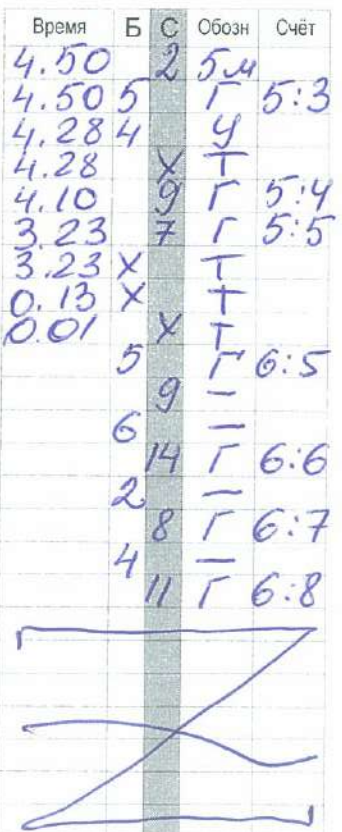 Время Б С Обозн Счёт
4.50 2 5м
4.50 5 Г 5:3
4.28 4 У
4.28 X Т
4.10 9 Г 5:4
3.23 7 Г 5:5
3.23 X Т
0.13 X Т
0.01 X Т
5 Г 6:5
9 —
6 —
14 Г 6:6
2 —
8 Г 6:7
4 —
11 Г 6:8